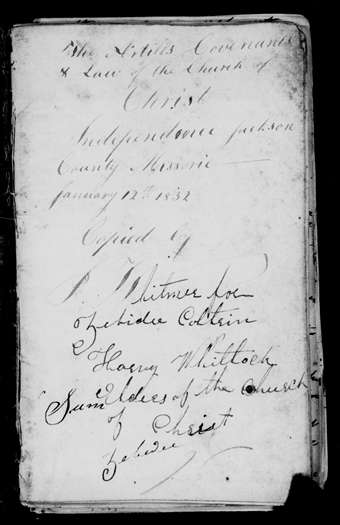 The Artills Covenants
& Law of the Church of
Christ
Independence Jackson
County Missorie
January 12th 1832
Copied by
P. Whitmer for
Zebidee Coltrin
Harry Whitlock
Elders of the Church
of Christ
Zebidee